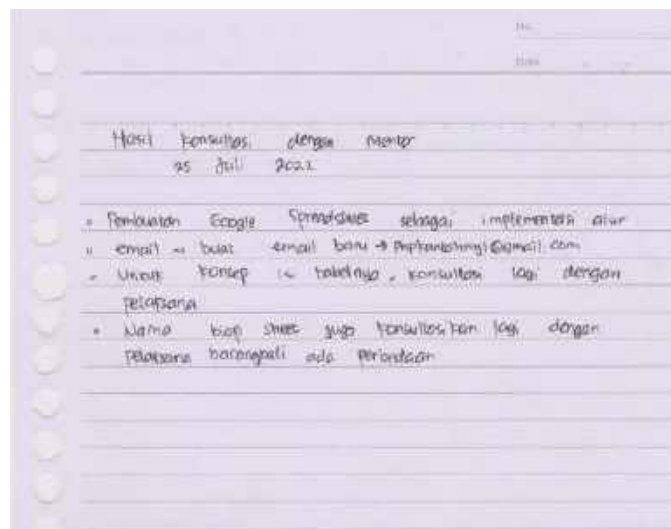 No.
Date
Hasil konsultasi dengan Mentor
25 Juli 2022
Pembuatan Google Spreadsheet sebagai implementasi alur
email → buat email baru →
Untuk konsep isi tabelnya, konsultasi lagi dengan
pelaksana
Nama tiap sheet juga konsultasikan lagi dengan
pelaksana barangkali ada perbedaan